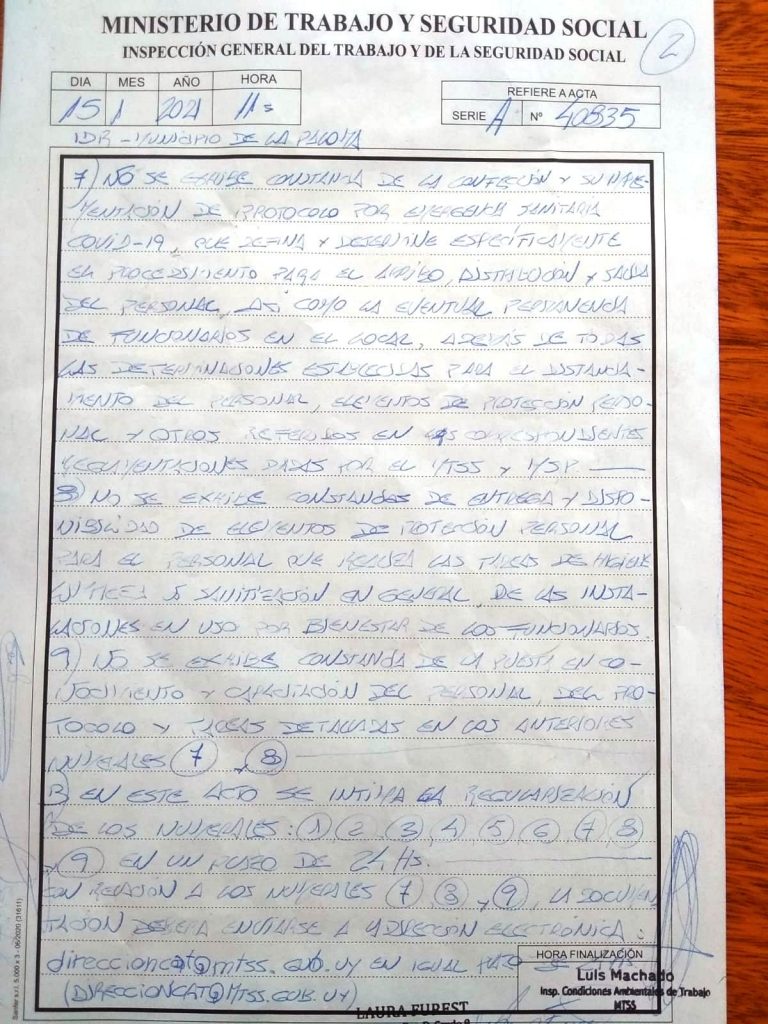 MINISTERIO DE TRABAJO Y SEGURIDAD SOCIAL
INSPECCIÓN GENERAL DEL TRABAJO Y DE LA SEGURIDAD SOCIAL
2
DIA MES AÑO HORA
15 1 2021 11
REFIERE A ACTA
SERIE A Nº 40835
IDR - MUNICIPIO DE LA PALOMA
7) NO SE EXHIBE CONSTANCIA DE LA CONFECCIÓN Y SU IMPLE-
MENTACIÓN DE PROTOCOLO POR EMERGENCIA SANITARIA
COVID-19, QUE DEFINA Y DETERMINE ESPECÍFICAMENTE
EL PROCEDIMIENTO PARA EL ARRIBO, DISTRIBUCIÓN Y SALIDA
DEL PERSONAL, ASI COMO LA EVENTUAL PERMANENCIA
DE FUNCIONARIOS EN EL LOCAL, ADEMÁS DE TODAS
LAS DETERMINACIONES ESTABLECIDAS PARA EL DISTANCIA-
MIENTO DEL PERSONAL, ELEMENTOS DE PROTECCIÓN PERSO-
NAL Y OTROS REFERIDOS EN LAS CORRESPONDIENTES
REGLAMENTACIONES DADAS POR EL MTSS Y MSP.
8) NO SE EXHIBE CONSTANCIAS DE ENTREGA Y DISPO-
NIBILIDAD DE ELEMENTOS DE PROTECCIÓN PERSONAL
PARA EL PERSONAL QUE REALIZA LAS TAREAS DE HIGIENE
LIMPIEZA SANITIZACIÓN EN GENERAL, DE LAS INSTA-
LACIONES EN USO POR BIENESTAR DE LOS FUNCIONARIOS.
9) NO SE EXHIBE CONSTANCIA DE LA PUESTA EN CO-
NOCIMIENTO Y CAPACITACIÓN DEL PERSONAL, DEL PRO-
TOCOLO Y TAREAS DETALLADAS EN LOS ANTERIORES
NUMERALES 7 Y 8
B) EN ESTE ACTO SE INTIMA LA REGULARIZACIÓN
DE LOS NUMERALES: 1 2 3 4 5 6 7 8
Y 9 EN UN PLAZO DE 24 Hs.
CON RELACIÓN A LOS NUMERALES 7, 8 Y 9, LA DOCUMEN
TACIÓN DEBERÁ ENVIARSE A LA DIRECCIÓN ELECTRÓNICA:
direccioncat@mtss.gub.uy EN IGUAL PLAZO DE
(DIRECCIONCAT@MTSS.GUB.UY)
HORA FINALIZACIÓN
Luis Machado
Insp. Condiciones Ambientales de Trabajo
MTSS
LAURA FUREST